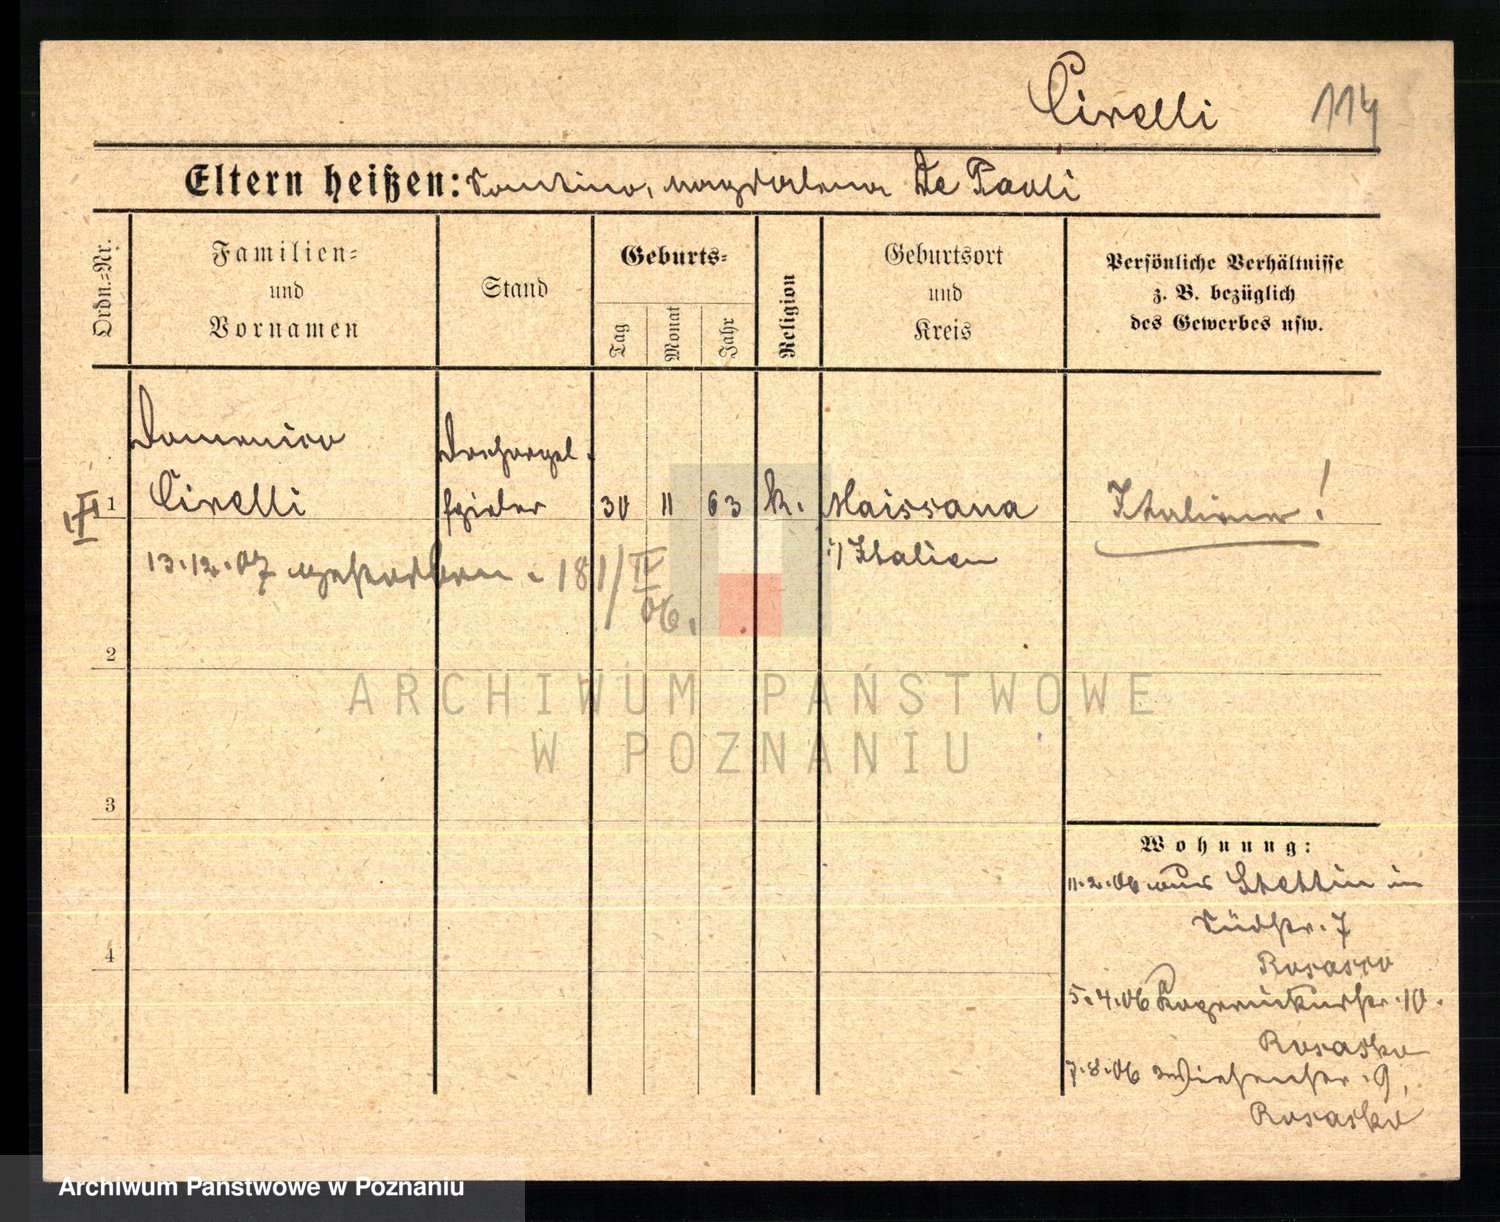 Cirelli 114
Eltern heißen: Santino, Magdalena De Paoli
Ordn.=Nr.
Familien=
und
Vornamen
Stand
Geburts=
Tag
Monat
Jahr
Religion
Geburtsort
und
Kreis
Persönliche Verhältnisse
z. B. bezüglich
des Gewerbes usw.
1
Domenico
Cirelli
Drehorgel-
spieler
30 11 63 k. Maissana
i/Italien
Italiener!
13.12.07 gestorben. 181/IV
06.
2
3
4
Wohnung:
11.2.06 aus Stettin in
Südstr. 7
Rosasco
5.4.06 10.
Rosasko
7.8.06 Wiesenstr. 9,
Rosasko
ARCHIWUM PAŃSTWOWE
W POZNANIU
Archiwum Państwowe w Poznaniu